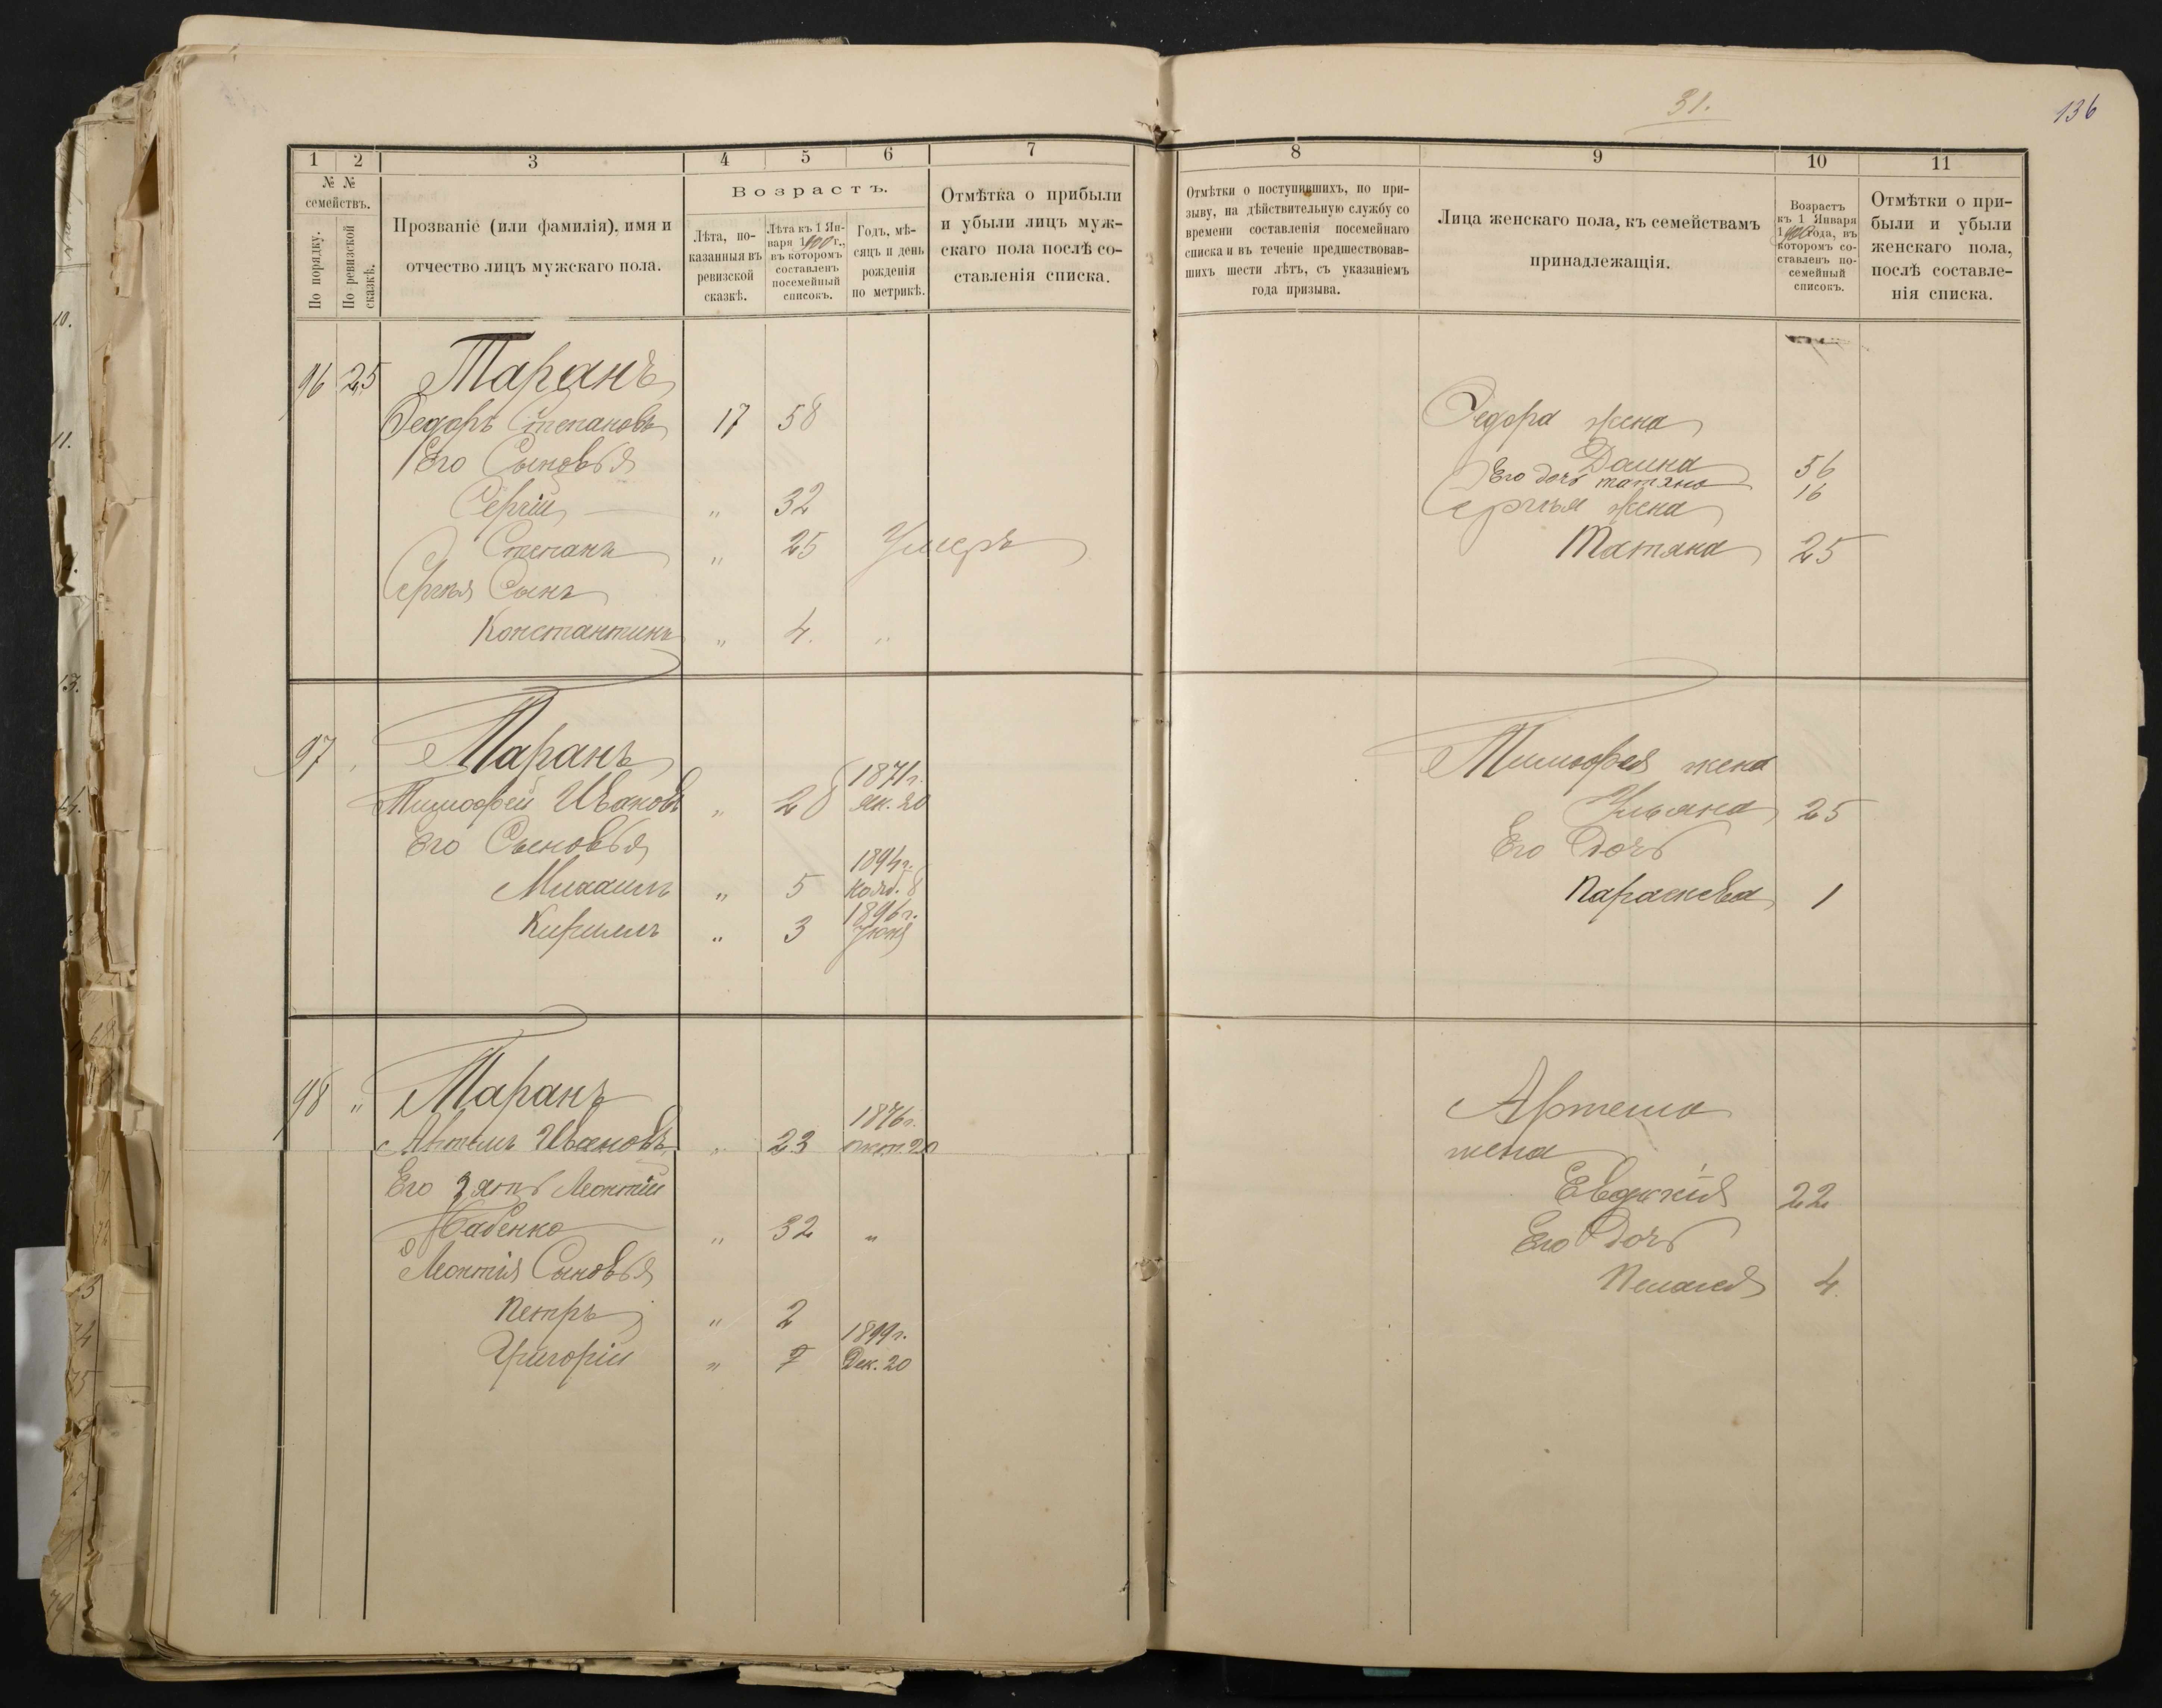 31.
136
1 2 3 4 5 6 7
№ №
семействъ.
По порядку.
По ревизской
сказкѣ.
Прозваніе (или фамилія), имя и
отчество лицъ мужскаго пола.
Возрастъ.
Лѣта, по-
казанныя въ
ревизской
сказкѣ.
Лѣта къ 1 Ян-
варя 1900 г.,
въ которомъ
составленъ
посемейный
списокъ.
Годъ, мѣ-
сяцъ и день
рожденія
по метрикѣ.
Отмѣтка о прибыли
и убыли лицъ муж-
скаго пола послѣ со-
ставленія списка.
96 25 Таранъ
Федоръ Степановъ 17 58
Его Сыновья
Сергій " 32
Степанъ " 25 Умеръ
Сергѣя Сынъ
Константинъ " 4. "
97 Таранъ
1871 г.
Тимофей Ивановъ " 28 Ян. 20
Его Сыновья
1894 г.
Михаилъ " 5 Нояб. 8
1896 г.
Кириллъ " 3 Іюня
98 " Таранъ
1876 г.
Артемъ Ивановъ " 23 окт. 20
Его зять Леонтій
Бабенко " 32 "
Леонтія Сыновья
Петръ " 2
1899 г.
Григорій " Дек. 20
8 9 10 11
Отмѣтки о поступившихъ, по при-
зыву, на дѣйствительную службу со
времени составленія посемейнаго
списка и въ теченіе предшествовав-
шихъ шести лѣтъ, съ указаніемъ
года призыва.
Лица женскаго пола, къ семействамъ
принадлежащія.
Возрастъ
къ 1 Января
1900 года, въ
которомъ со-
ставленъ по-
семейный
списокъ.
Отмѣтки о при-
были и убыли
женскаго пола,
послѣ составле-
нія списка.
Федора жена
Домна 56
Его дочь татяна 16
Сергѣя жена
Татяна 25
Тимофея жена
Ульяна 25
Его Дочь
Параскева 1
Артема
жена
Евдокія 22
Его Дочь
Пелагея 4.